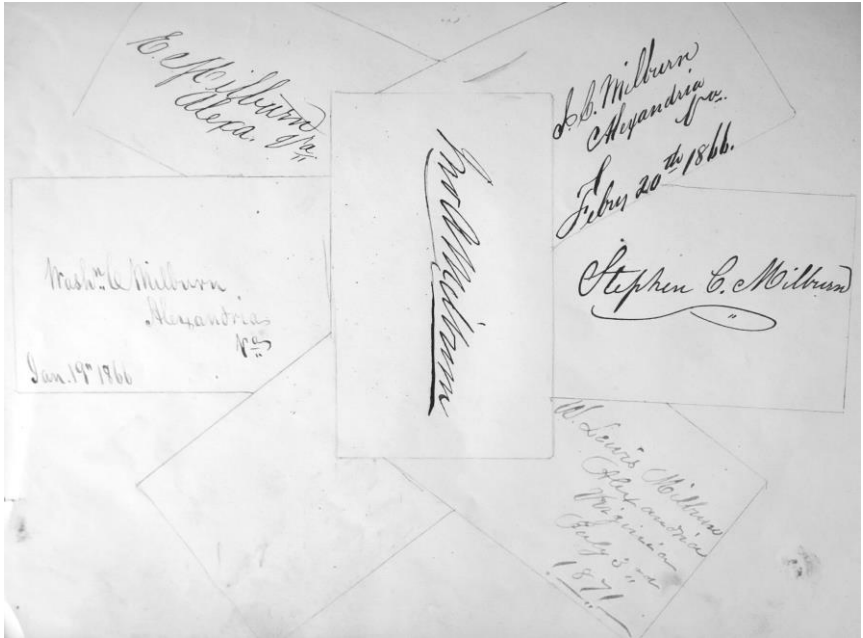 E. C. Milburn
Alexa. Va
J. C. Milburn
Alexandria
Va.
Feby 20th 1866.
Washn. C. Milburn
Alexandria
Va
Jan. 19th 1866
Milburn
Stephen C. Milburn
W. Lewis Milburn
Alexandria
Virginia
July 3rd
1871